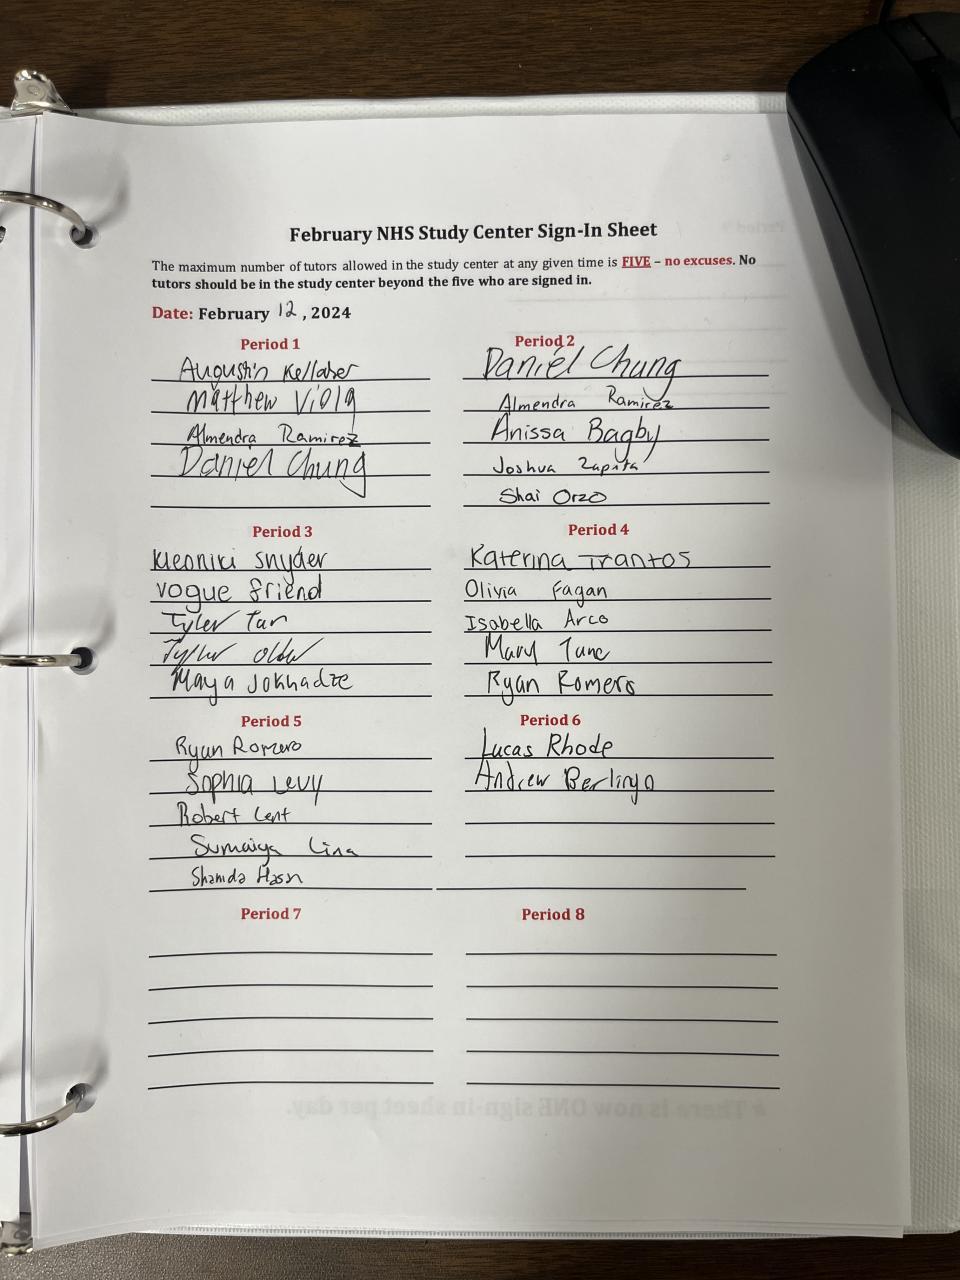 February NHS Study Center Sign-In Sheet
The maximum number of tutors allowed in the study center at any given time is FIVE – no excuses. No
tutors should be in the study center beyond the five who are signed in.
Date: February 12, 2024
Period 1
Augustin Kellaher
Matthew Viola
Almendra Ramirez
Daniel Chung
Period 2
Daniel Chung
Almendra Ramirez
Anissa Bagby
Joshua Zapata
Shai Orzo
Period 3
Kleoniki Snyder
Vogue friend
Tyler Tan
Maya Jokhadze
Period 4
Katerina Trantos
Olivia Fagan
Isabella Arco
Mary
Ryan Romero
Period 5
Ryan Romero
Sophia Levy
Robert Lent
Sumaiya
Period 6
Lucas Rhode
Andrew
Period 7
Period 8